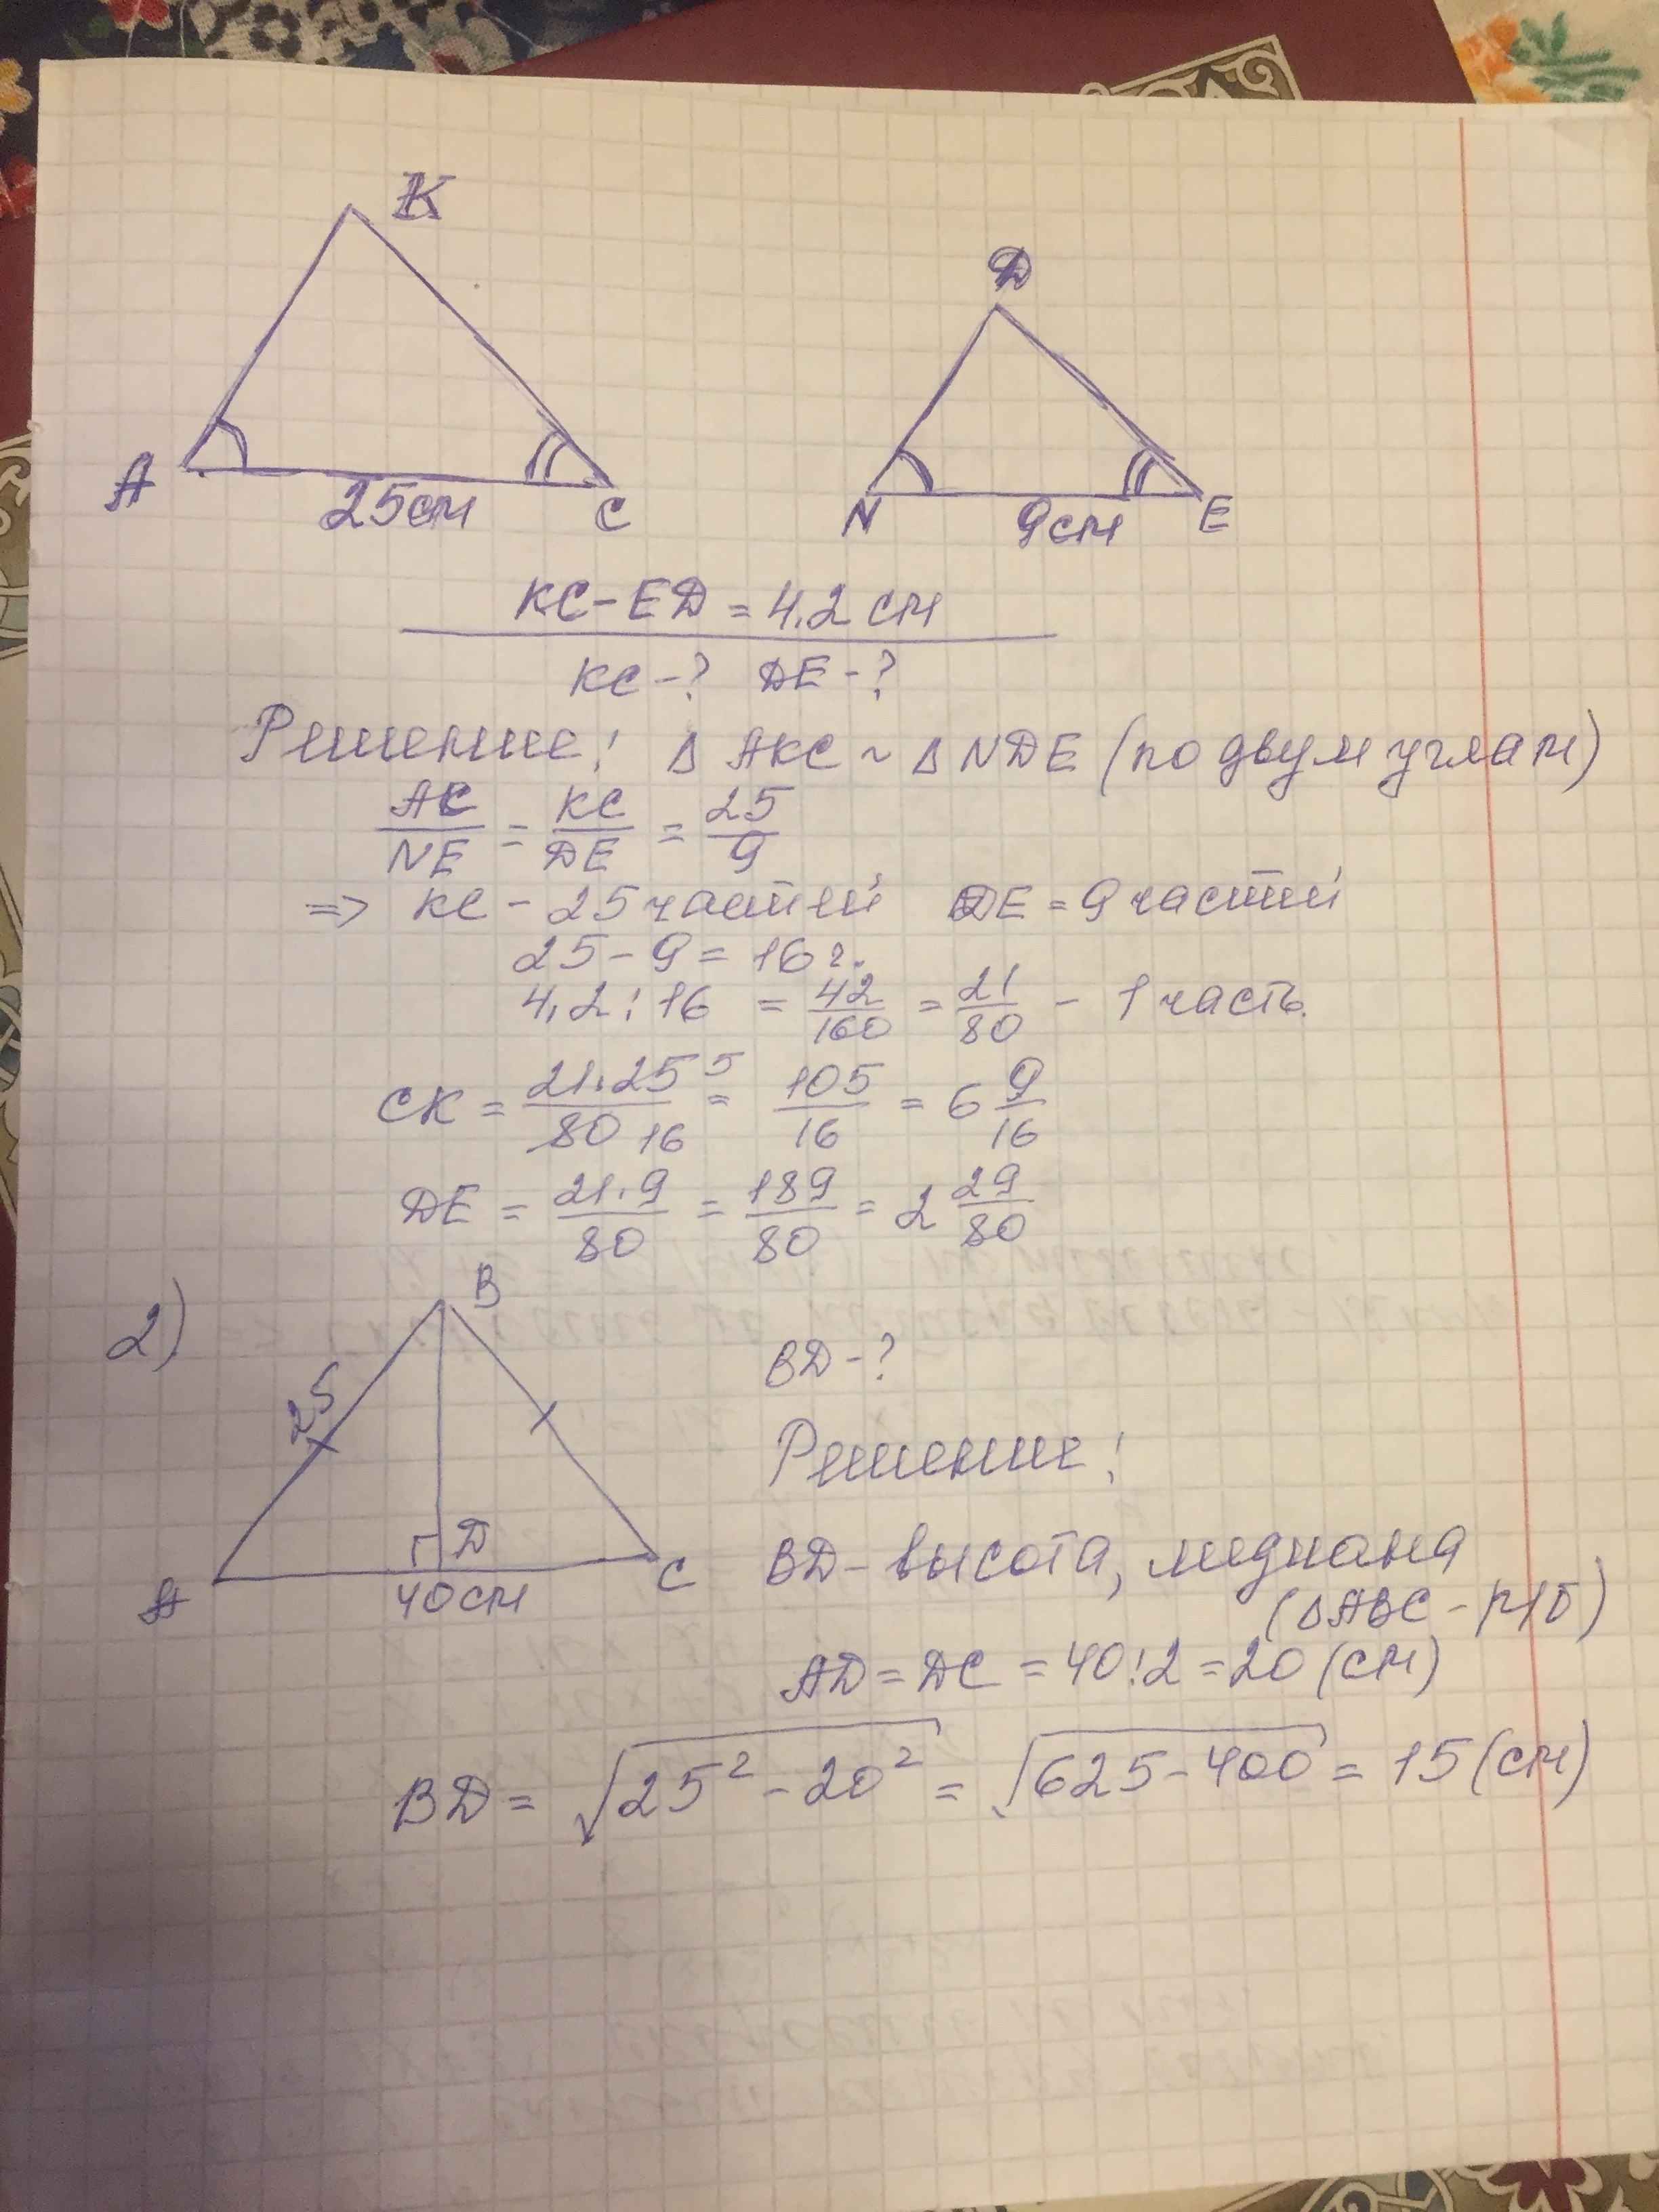 K
D
A
25см
C
N
9см
E
KC-ED = 4.2 см
KC-? DE-?
Решение: Δ AKC ~ Δ NDE (по двум углам)
AC/NE = KC/DE = 25/9
=> KC - 25 частей DE = 9 частей
25 - 9 = 16 ч.
4,2 : 16 = 42/160 = 21/80 - 1 часть.
CK = 21·25 5/80 16 = 105/16 = 6 9/16
DE = 21·9/80 = 189/80 = 2 29/80
2)
B
25
BD-?
Решение:
D
A
40см
C
BD- высота, медиана
(ΔABC - р/б)
AD = DC = 40:2 = 20 (см)
BD = √25² - 20² = √625-400 = 15 (см)